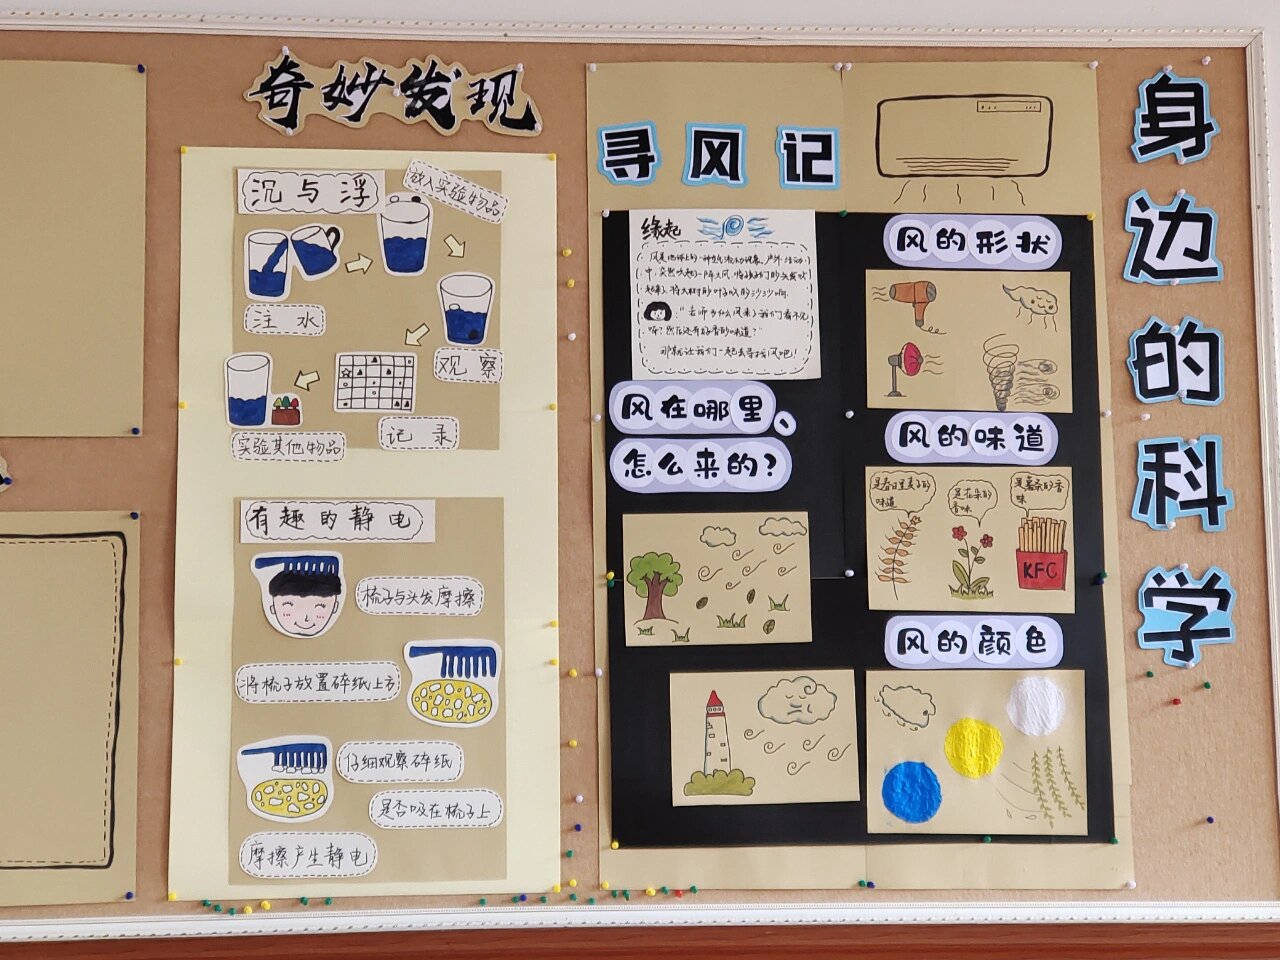 奇妙发现
沉与浮
放入实验物品
注水
观察
记录
实验其他物品
有趣的静电
梳子与头发摩擦
将梳子放置碎纸上方
仔细观察碎纸
是否吸在梳子上
摩擦产生静电
寻风记
缘起
风是地球上的一种自然流动现象,户外活动
中,突然吹起一阵大风,将孩子们的头发吹
起来了,将大树的叶子吹的沙沙响.
:"老师为什么风来了我们看不见
呀?然后还有好香的味道?"
那就让我们一起去寻找风吧!
风在哪里、
怎么来的?
风的形状
风的味道
是春日里麦子的
味道
是花朵的
香味
是薯条的香
味
KFC
风的颜色
身边的科学